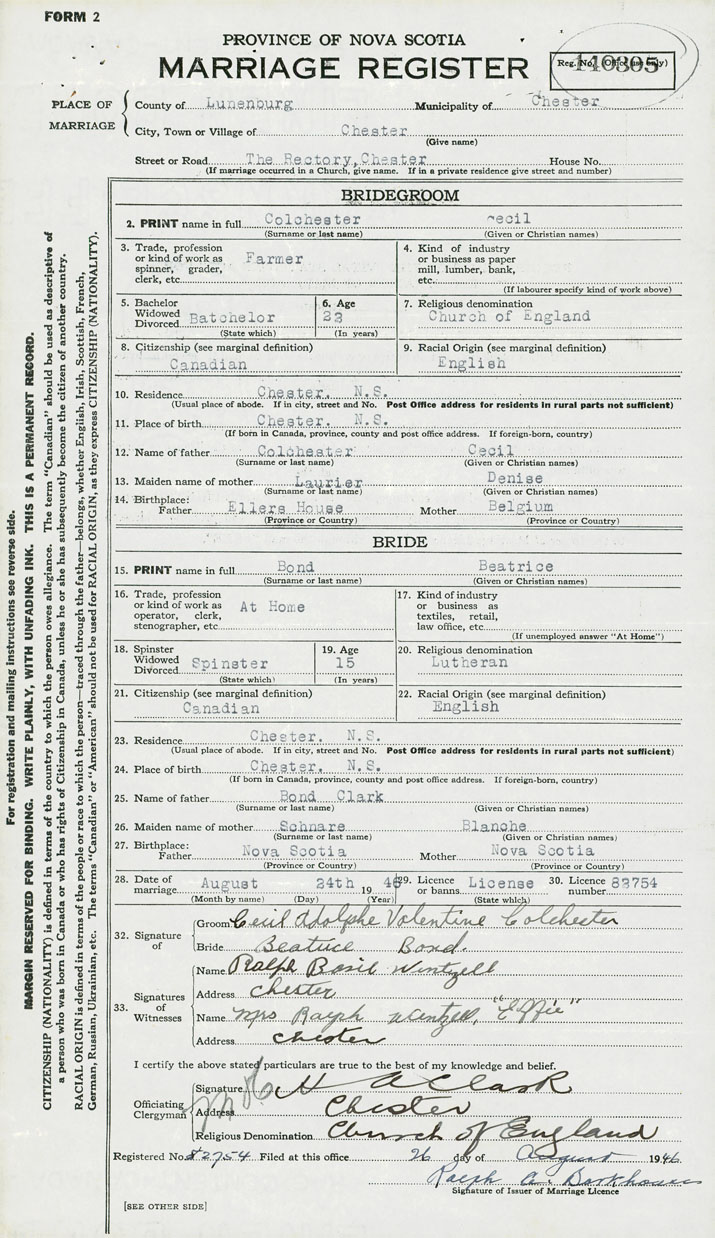 FORM 2
PROVINCE OF NOVA SCOTIA
MARRIAGE REGISTER
Reg. No. (Office use only)
PLACE OF MARRIAGE
County of Lunenburg Municipality of Chester
City, Town or Village of Chester
(Give name)
Street or Road The Rectory, Chester House No.
(If marriage occurred in a Church, give name. If in a private residence give street and number)
BRIDEGROOM
2. PRINT name in full Colchester Cecil
(Surname or last name) (Given or Christian names)
3. Trade, profession or kind of work as spinner, grader, clerk, etc. Farmer
4. Kind of industry or business as paper mill, lumber, bank, etc.
(If labourer specify kind of work above)
5. Bachelor Widowed Divorced Batchelor
(State which)
6. Age 23
(In years)
7. Religious denomination
Church of England
8. Citizenship (see marginal definition)
Canadian
9. Racial Origin (see marginal definition)
English
10. Residence Chester. N.S.
(Usual place of abode. If in city, street and No. Post Office address for residents in rural parts not sufficient)
11. Place of birth Chester. N.S.
(If born in Canada, province, county and post office address. If foreign-born, country)
12. Name of father Colchester Cecil
(Surname or last name) (Given or Christian names)
13. Maiden name of mother Laurier Denise
(Surname or last name) (Given or Christian names)
14. Birthplace:
Father Ellers House Mother Belgium
(Province or Country) (Province or Country)
BRIDE
15. PRINT name in full Bond Beatrice
(Surname or last name) (Given or Christian names)
16. Trade, profession or kind of work as operator, clerk, stenographer, etc. At Home
17. Kind of industry or business as textiles, retail, law office, etc.
(If unemployed answer "At Home")
18. Spinster Widowed Divorced Spinster
(State which)
19. Age 15
(In years)
20. Religious denomination
Lutheran
21. Citizenship (see marginal definition)
Canadian
22. Racial Origin (see marginal definition)
English
23. Residence Chester. N.S.
(Usual place of abode. If in city, street and No. Post Office address for residents in rural parts not sufficient)
24. Place of birth Chester. N.S.
(If born in Canada, province, county and post office address. If foreign-born, country)
25. Name of father Bond Clark
(Surname or last name) (Given or Christian names)
26. Maiden name of mother Schnare Blanche
(Surname or last name) (Given or Christian names)
27. Birthplace:
Father Nova Scotia Mother Nova Scotia
(Province or Country) (Province or Country)
28. Date of marriage August 24th 19 46 29. Licence or banns. License 30. Licence number 82754
(Month by name) (Day) (Year) (State which)
32. Signature of
Groom Cecil Adolphe Valentine Colchester
Bride Beatrice Bond.
33. Signatures of Witnesses
Name Ralph Basil Wentzell
Address Chester
Name Mrs Ralph Wentzell, "Effie"
Address Chester
I certify the above stated particulars are true to the best of my knowledge and belief.
Officiating Clergyman
Signature H A Clark
Address Chester
Religious Denomination Church of England
Registered No. 82754 Filed at this office 26 day of August 1946
Ralph A. Barkhouse
Signature of Issuer of Marriage Licence
[SEE OTHER SIDE]
For registration and mailing instructions see reverse side.
MARGIN RESERVED FOR BINDING. WRITE PLAINLY, WITH UNFADING INK. THIS IS A PERMANENT RECORD.
CITIZENSHIP (NATIONALITY) is defined in terms of the country to which the person owes allegiance. The term "Canadian" should be used as descriptive of
a person who was born in Canada or who has rights of Citizenship in Canada, unless he or she has subsequently become the citizen of another country.
RACIAL ORIGIN is defined in terms of the people or race to which the person—traced through the father—belongs, whether English, Irish, Scottish, French,
German, Russian, Ukrainian, etc. The terms "Canadian" or "American" should not be used for RACIAL ORIGIN, as they express CITIZENSHIP (NATIONALITY).